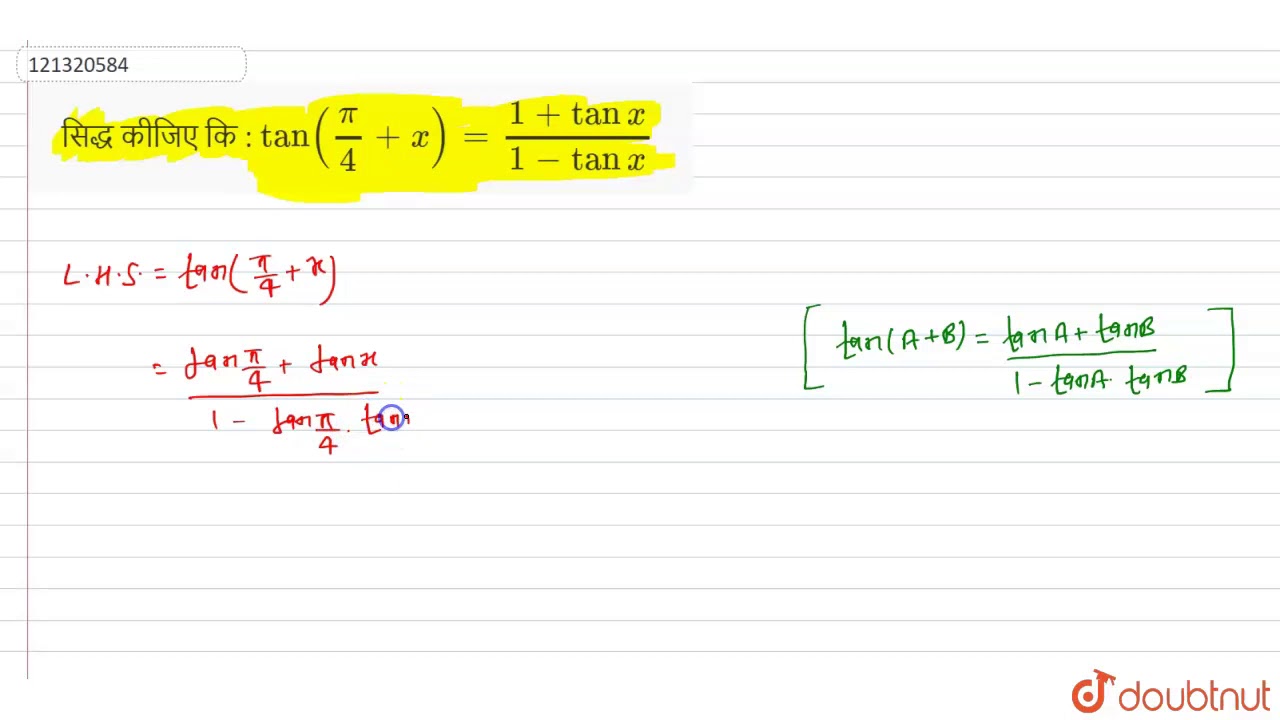 121320584
सिद्ध कीजिए कि : tan(π/4 + x) = (1 + tan x)/(1 − tan x)
L.H.S. = tan(π/4 + x)
[ tan(A+B) = (tanA + tanB)/(1 - tanA. tanB) ]
= (tan π/4 + tan x)/(1 - tan π/4 . tan
doubtnut